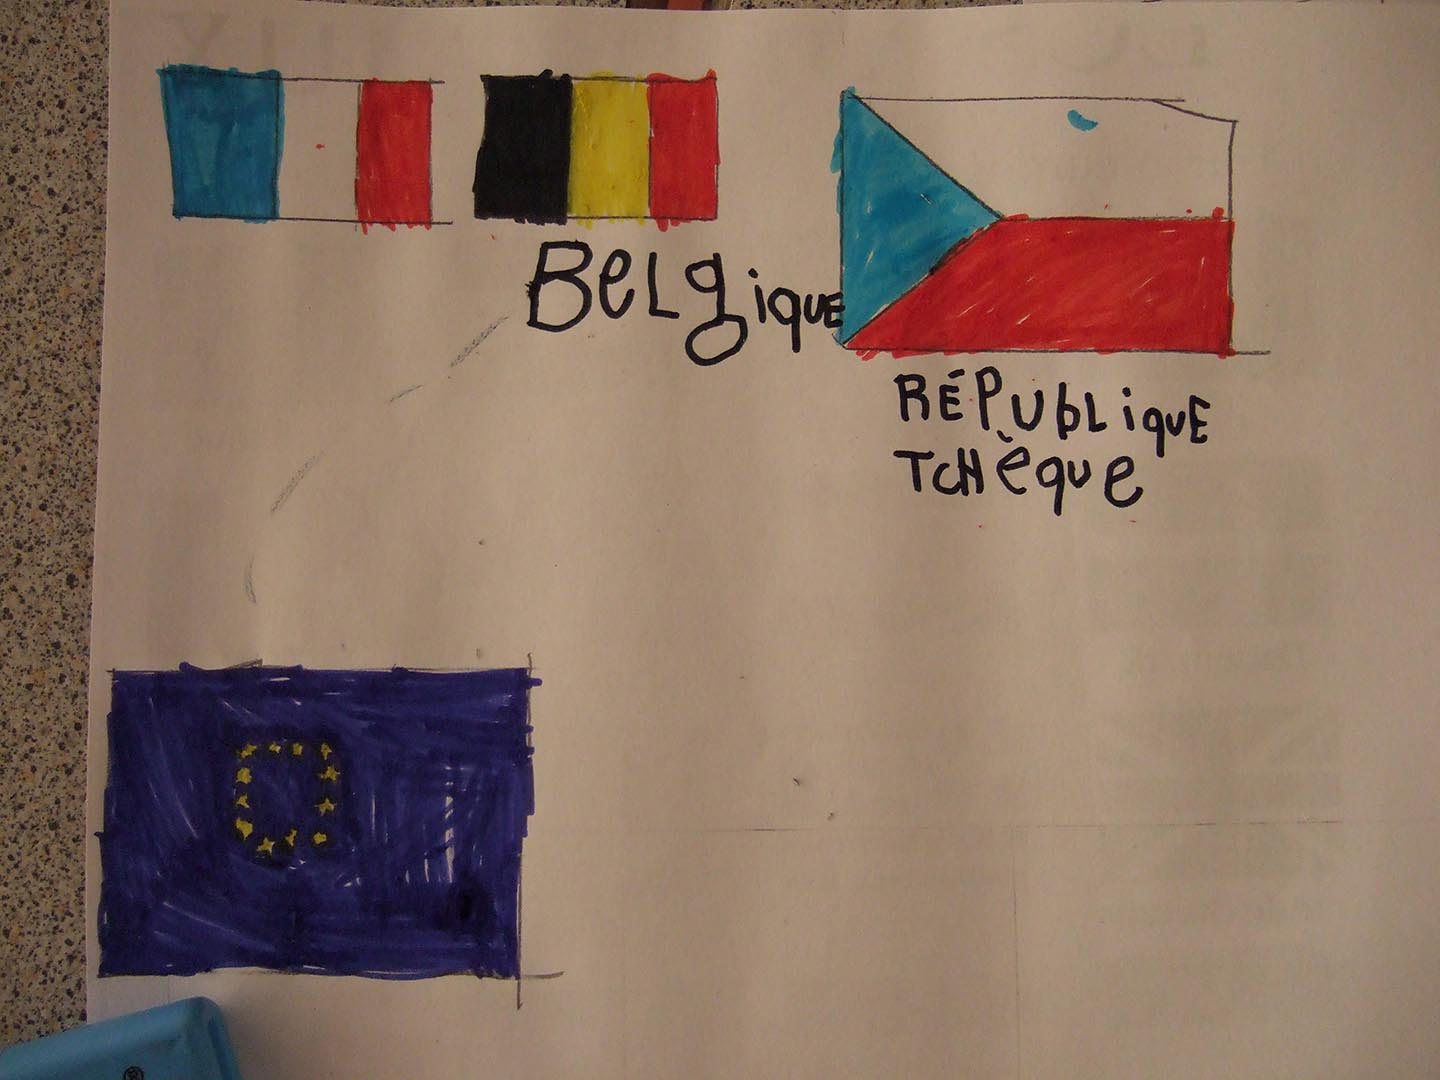 BeLgique
RÉPUbLiqUE
TCHèque